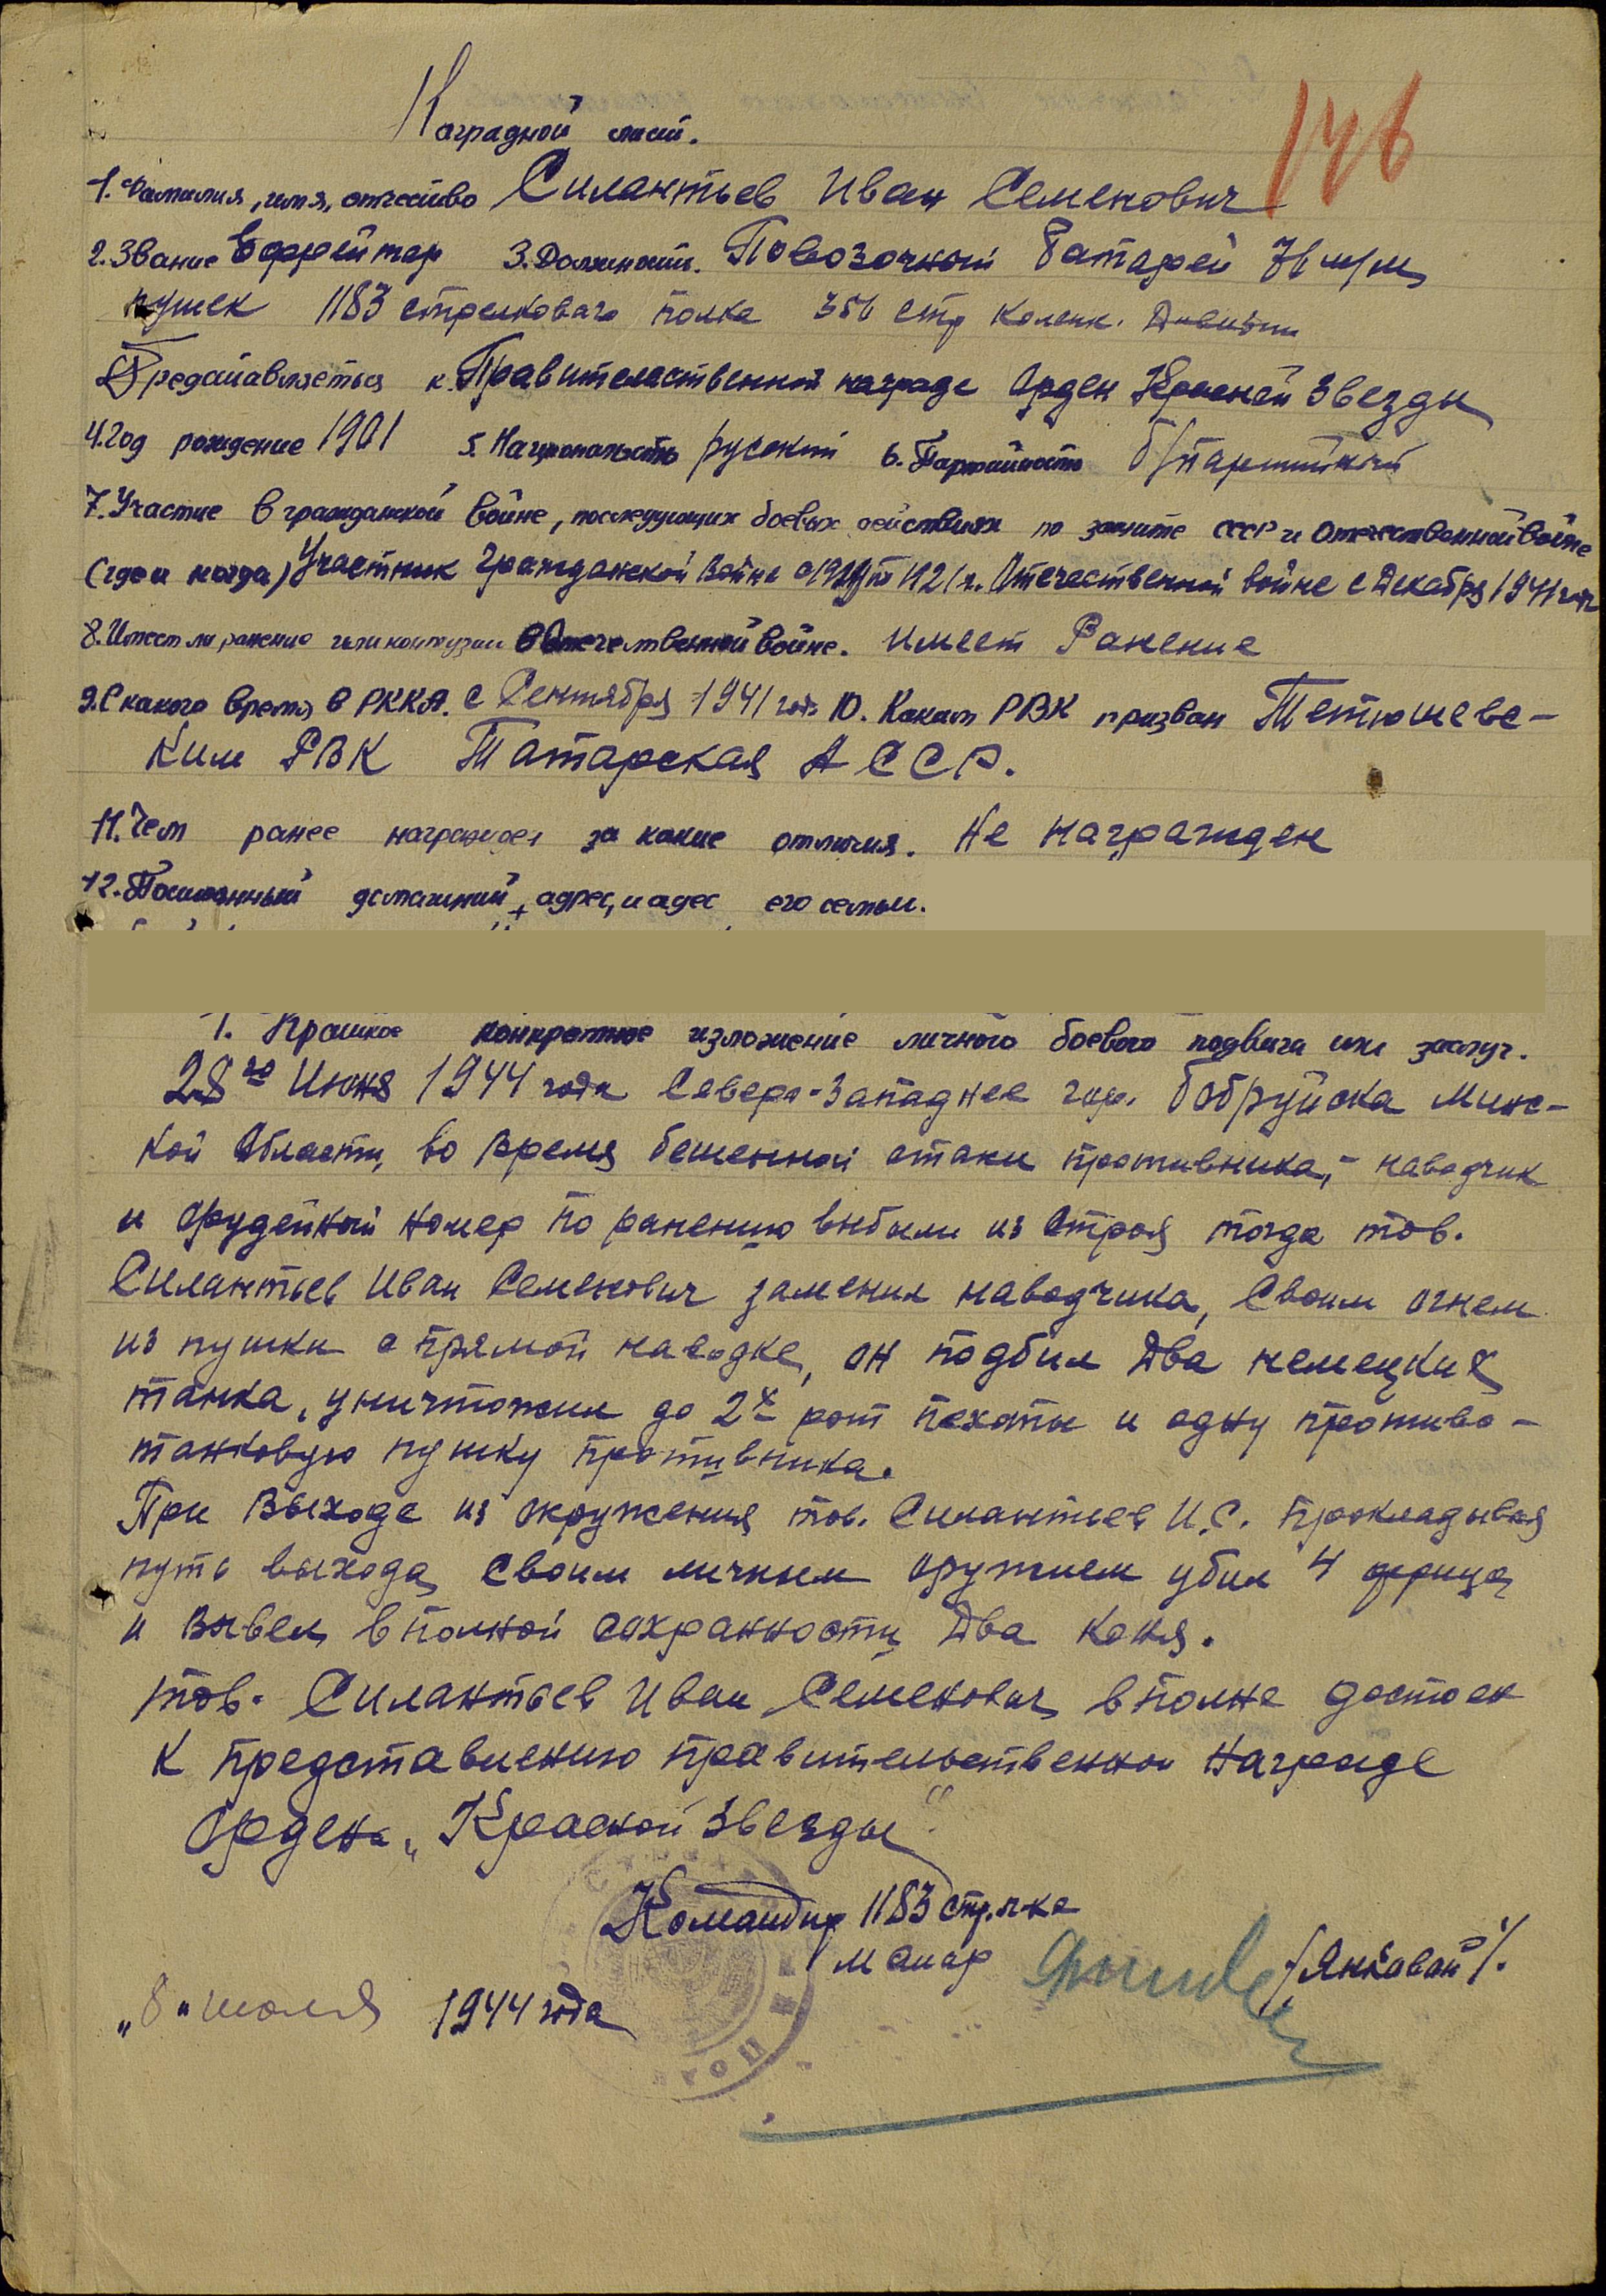 146
Наградной лист.
1. Фамилия, имя, отчество Силантьев Иван Семенович
2. Звание Ефрейтор 3. Должность. Повозочный батареи 76 м/м
пушек 1183 стрелкового полка 356 стр Коленк. Дивизии
Представляется к Правительственной награде Орден Красной Звезды
4. Год рождение 1901 5. Национальность русский 6. Партийность б/партийный
7. Участие в гражданской войне, последующих боевых действиях по защите СССР и Отечественной войне
(где и когда) Участник Гражданской войне с 1919 по 1921 г. Отечественной войне с Декабря 1941 года
8. Имеет ли ранение или контузии в Отечественной войне. Имеет Ранение
9. С какого время в РККА. с Сентября 1941 года 10. Каким РВК призван Тетюшевс-
Ким РВК Татарская АССР.
11. Чем ранее награжден за какие отличия. Не награжден
12. Постоянный домашний адрес, и адес его семьи.
1. Краткое конкретное изложение личного боевого подвига или заслуг.
28го Июня 1944 года Северо-Западнее гор. Бобруйска Минс-
кой Области, во время бешенной атаки противника, - наводчик
и орудейный номер по ранению выбыли из строя тогда тов.
Силантьев Иван Семенович заменил наводчика, Своим огнем
из пушки с прямой наводке, он подбил Два немецких
танка, уничтожил до 2х рот пехоты и одну противо-
танковую пушку противника.
При выходе из окружения тов. Силантьев И.С. прокладывая
путь выхода, своим личным оружием убил 4 фрица
и вывел в полной сохранности Два коня.
тов. Силантьев Иван Семенович вполне достоен
к представлению правительственной награде
Ордена „Красной Звезды"
Командир 1183 стр. п-ка
Маиор /Янковой/.
„8" июля 1944 года